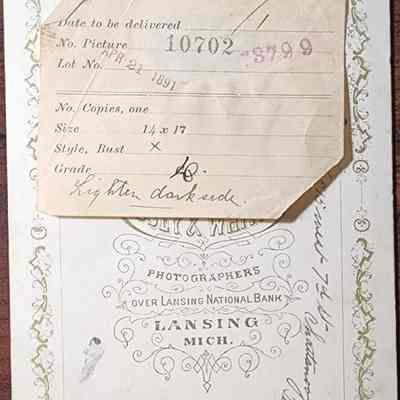 Date to be delivered
No. Picture 10702 -3799
Lot No. APR 21 1891
No. Copies, one
Size 14 x 17
Style, Bust x
Grade
Lighten dark side.
PHOTOGRAPHERS
OVER LANSING NATIONAL BANK
LANSING
MICH.
7th St